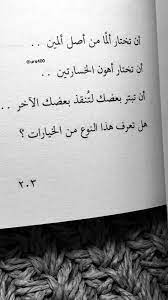 أن تختار ألمًا من أصل ألمين . .
أن تختار أهون الخسارتين . .
أن تبتر بعضك لتُنقذ بعضك الآخر . .
هل تعرف هذا النوع من الخيارات ؟
٢٠٣